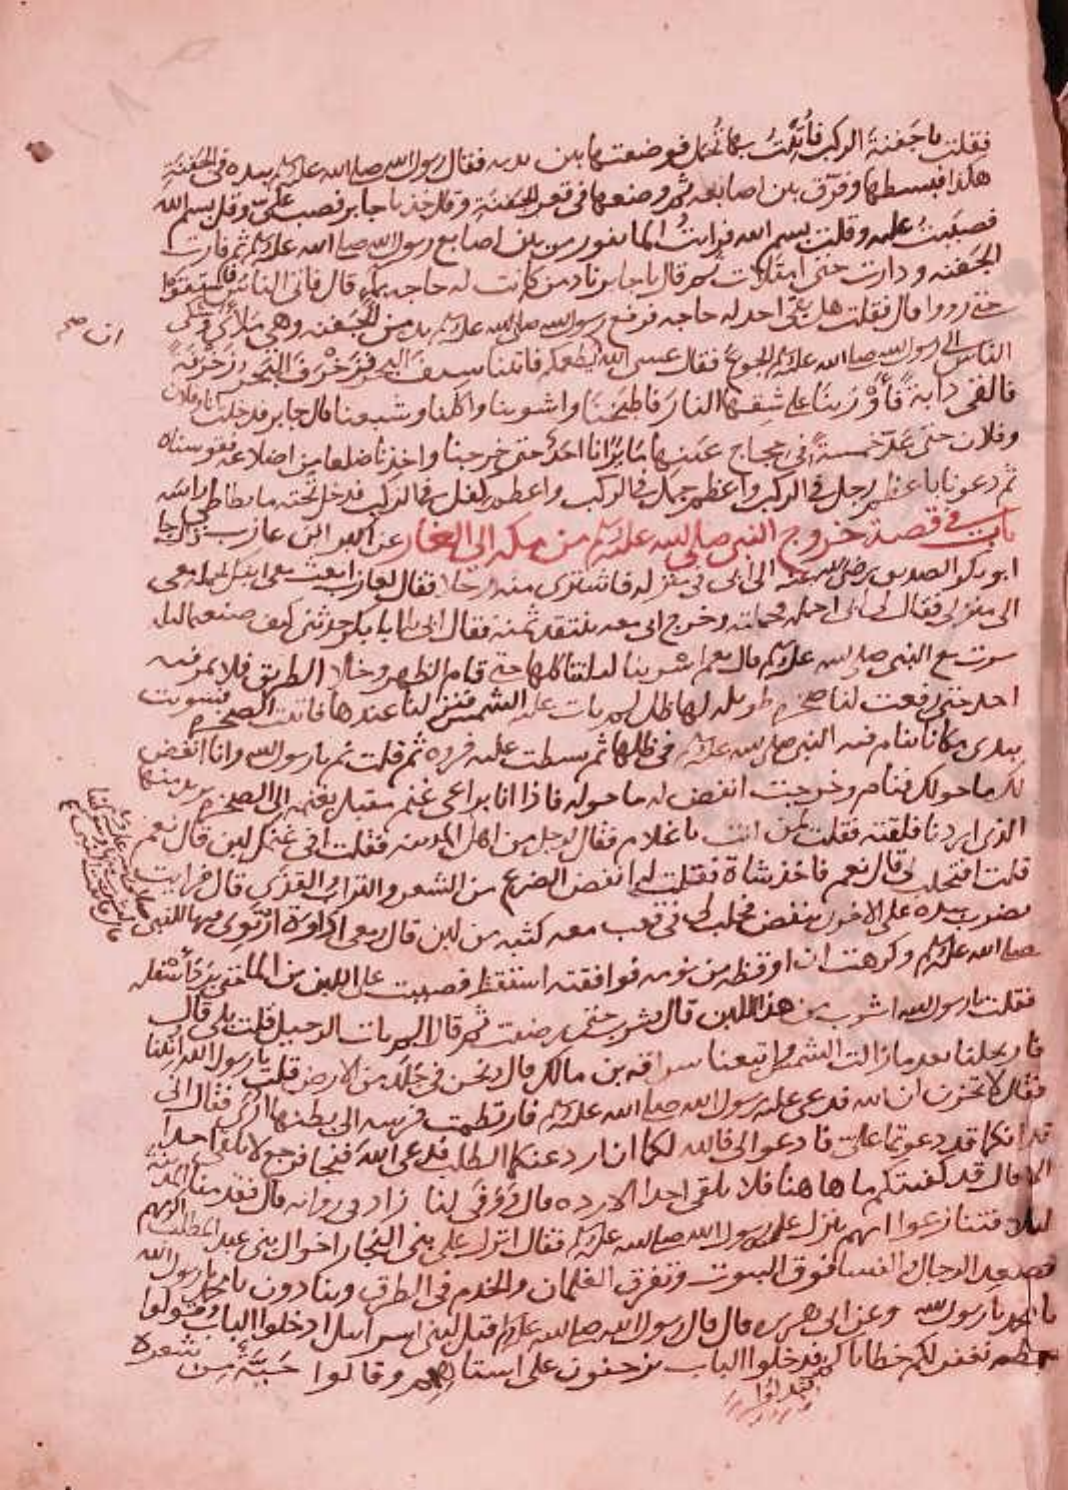 فقلت يا جفنة الركب فأُتيتُ بها تُحمل فوضعتها بين يديه فقال رسول الله صلى الله عليه وسلم بيده في الجَفنةِ
هكذا فبسطها وفرّق بين اصابعه ثم وضعها في قعر الجَفنَةِ وقال خذ يا جابر فصب عليّ وقل بسم الله
فصبَبتُ عليه وقلت بسم الله فرايتُ الما يفور من بين اصابع رسول الله صلى الله عليه وسلم ثم فارت
الجَفنه ودارت حتى امتَلات ثم قال يا جابر ناد من كانت له حاجه بماءٍ قال فاتى الناسُ فاستقوا
حتى رووا قال فقلت هل بقى احد له حاجه فرفع رسول الله صلى الله عليه وسلم يده من الجَفنه وهى مَلآى وشكى
ان صح
الناس الى رسول الله صلى الله عليه وسلم الجوعَ فقال عسى الله يُطعمكم فاتينا سِيفَ البحر فزَخَرَفَ البَحر زَخرَفَةً
فالقى دابةً فَأَوْرَينَا على شِقِّها النارَ فاطبَخنَا واشوينا واكلنا وشبعنا قال جابر فدخلتُ انا وفلان
وفلان حتى عَدّ خمسةً في حِجاج عَينِها مَا يَرَانا احَدٌ حتى خرجنا واخذنا ضلعا من اضلاعه فقوسناه
ثم دعونا باعظم رجل في الركب واعظم جمل في الركب واعظم كفل في الركب فدخل تحته ما يطاطى راسَه
باب في قصة خروج النبي صلى الله عليه وسلم من مكه الى الغار عن البرا ابن عازب قال جا
ابو بكر الصديق رضي الله عنه الى ابى في منزله فاشترى منه رحلا فقال لعازب ابعث معى ابنك يحمله معى
الى منزلى فقال لى ابى احمله فحملته وخرج ابى معه ينتقد ثمنه فقال ابى يا ابا بكر حدثنى كيف صنعتما ليله
سريت مع النبي صلى الله عليه وسلم قال نعم اسرينا ليلتنا كلها حتى قام الظهر وخلا الطريق فلا يمر فيه
احد حتى رفعت لنا صخره طويله لها ظل لم يات عليه الشمس فنزلنا عندها فاتيت الصخره فسويت
بيدى مكانا ينام فيه النبي صلى الله عليه وسلم في ظلها ثم بسطت عليه فروه ثم قلت نم يا رسول الله وانا انفض
لك ما حولك فنام وخرجت انفض له ما حوله فاذا انا براعى غنم مقبل بغنمه الى الصخره يريد منها
الذى اردنا فلقيته فقلت لمن انت يا غلام فقال لرجل من اهل المدينه فقلت افى غنمك لبن قال نعم
قلت افتحلب لى قال نعم فاخذ شاة فقلت له انفض الضرع من الشعر والتراب والقذى قال فرايت
يضرب بيده على الاخرى ينفض فحلب لى في قعب معه كثبه من لبن قال ومعى اداوة ارتوى فيها للنبي
صلى الله عليه وسلم وكرهت ان اوقظه من نومه فوافقته استيقظ فصببت على اللبن من الما حتى بَرَدَ أسفله
فقلت يا رسول الله اشرب من هذا اللبن قال فشرب حتى رضيت ثم قال الم يان الرحيل قلت بلى قال
فارتحلنا بعد ما زالت الشمس واتبعنا سراقه بن مالك قال ونحن في جَلَد من الارض قلت يا رسول الله اتينا
فقال لا تحزن ان الله فدعى عليه رسول الله صلى الله عليه وسلم فارتطمت فرسه الى بطنها فقال انى
قد انكما قد دعوتما على فادعوا لى فالله لكما ان ارد عنكما الطلب فدعى اللهَ فنجا فرجع لا يلقى احدا
الا قال قد كفيتكم ما هاهنا فلا يلقى احدا الا رده قال وَوَفَى لنا زاد في روايه قال فقدمنا المدينه
ليلا فتنازعوا ايهم ينزل عليه رسول الله صلى الله عليه وسلم فقال انزل على بنى النجار اخوال بنى عبد المطلب اكرمهم
فصعد الرجال والنسا فوق البيوت وتفرق الغلمان والخدم في الطرق وينادون يا محمد يا رسول الله
يا محمد يا رسول الله وعن ابى هريره قال قال رسول الله صلى الله عليه وسلم قيل لبنى اسرائيل ادخلوا الباب وقولوا
حطه نغفر لكم خطاياكم فدخلوا الباب يزحفون على استاههم وقالوا حَبَّة من شعره
فبدلوا